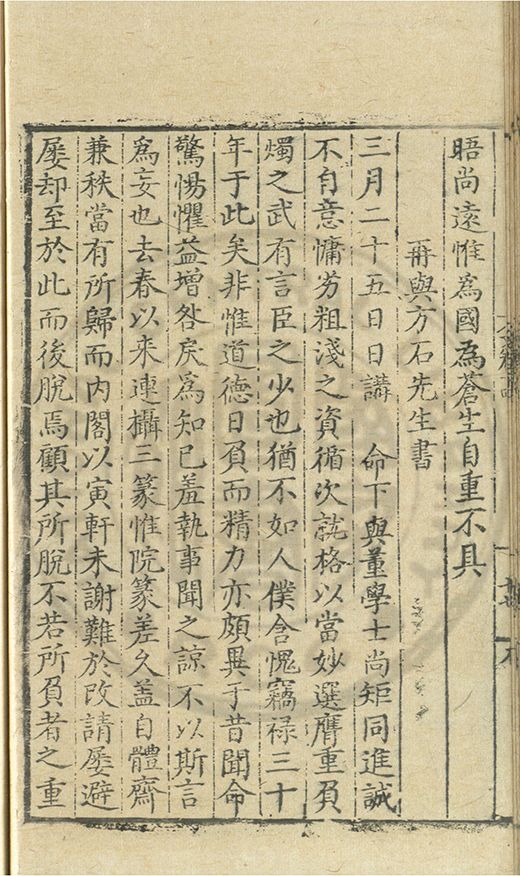 晤尚遠惟為國為蒼生自重不具
再與方石先生書
三月二十五日日講 命下與董學士尚矩同進誠
不自意慵劣粗淺之資循次就格以當妙選膺重負
燭之武有言臣之少也猶不如人僕含愧竊祿三十
年于此矣非惟道德日負而精力亦頗異于昔聞命
驚惕懼益增咎戾為知巳羞執事聞之諒不以斯言
為妄也去春以来連攝三篆惟院篆差久盖自體齋
兼秩當有所歸而内閣以寅軒未謝難於改請屡避
屡却至於此而後脫焉顧其所脫不若所負者之重